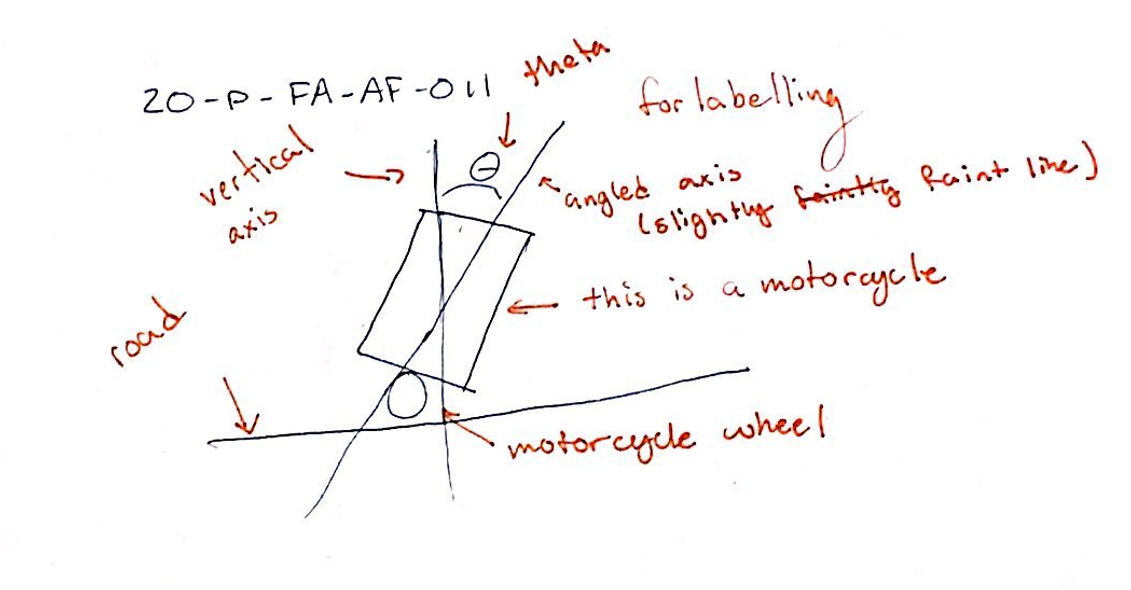 20-P-FA-AF-011
theta
for labelling
vertical
axis
θ
angled axis
(slightly faintly faint line)
this is a motorcycle
road
motorcycle wheel